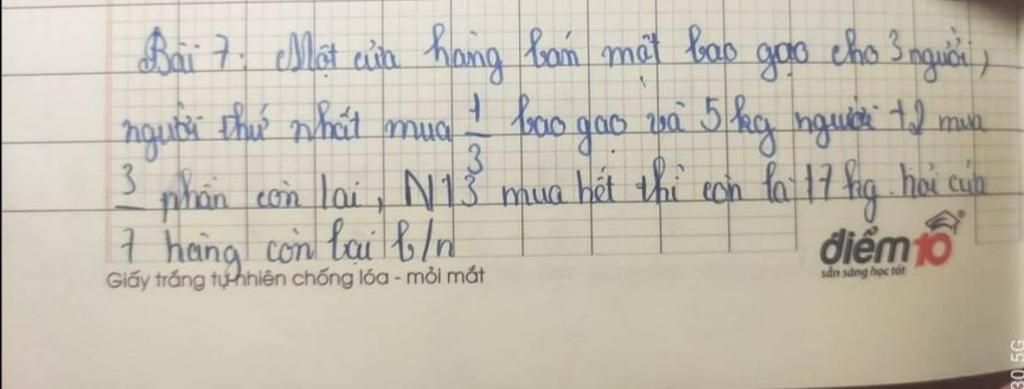 Bài 7: Một cửa hàng bán một bao gạo cho 3 người,
người thứ nhất mua 1/3 bao gạo và 5 kg người t2 mua
3/7 phần còn lại, N13 mua hết thì còn lại 17 kg. hỏi cửa
hàng còn lại b/n
Giấy trắng tự nhiên chống lóa - mỏi mắt
điểm10
sẵn sàng học tốt
30.5G